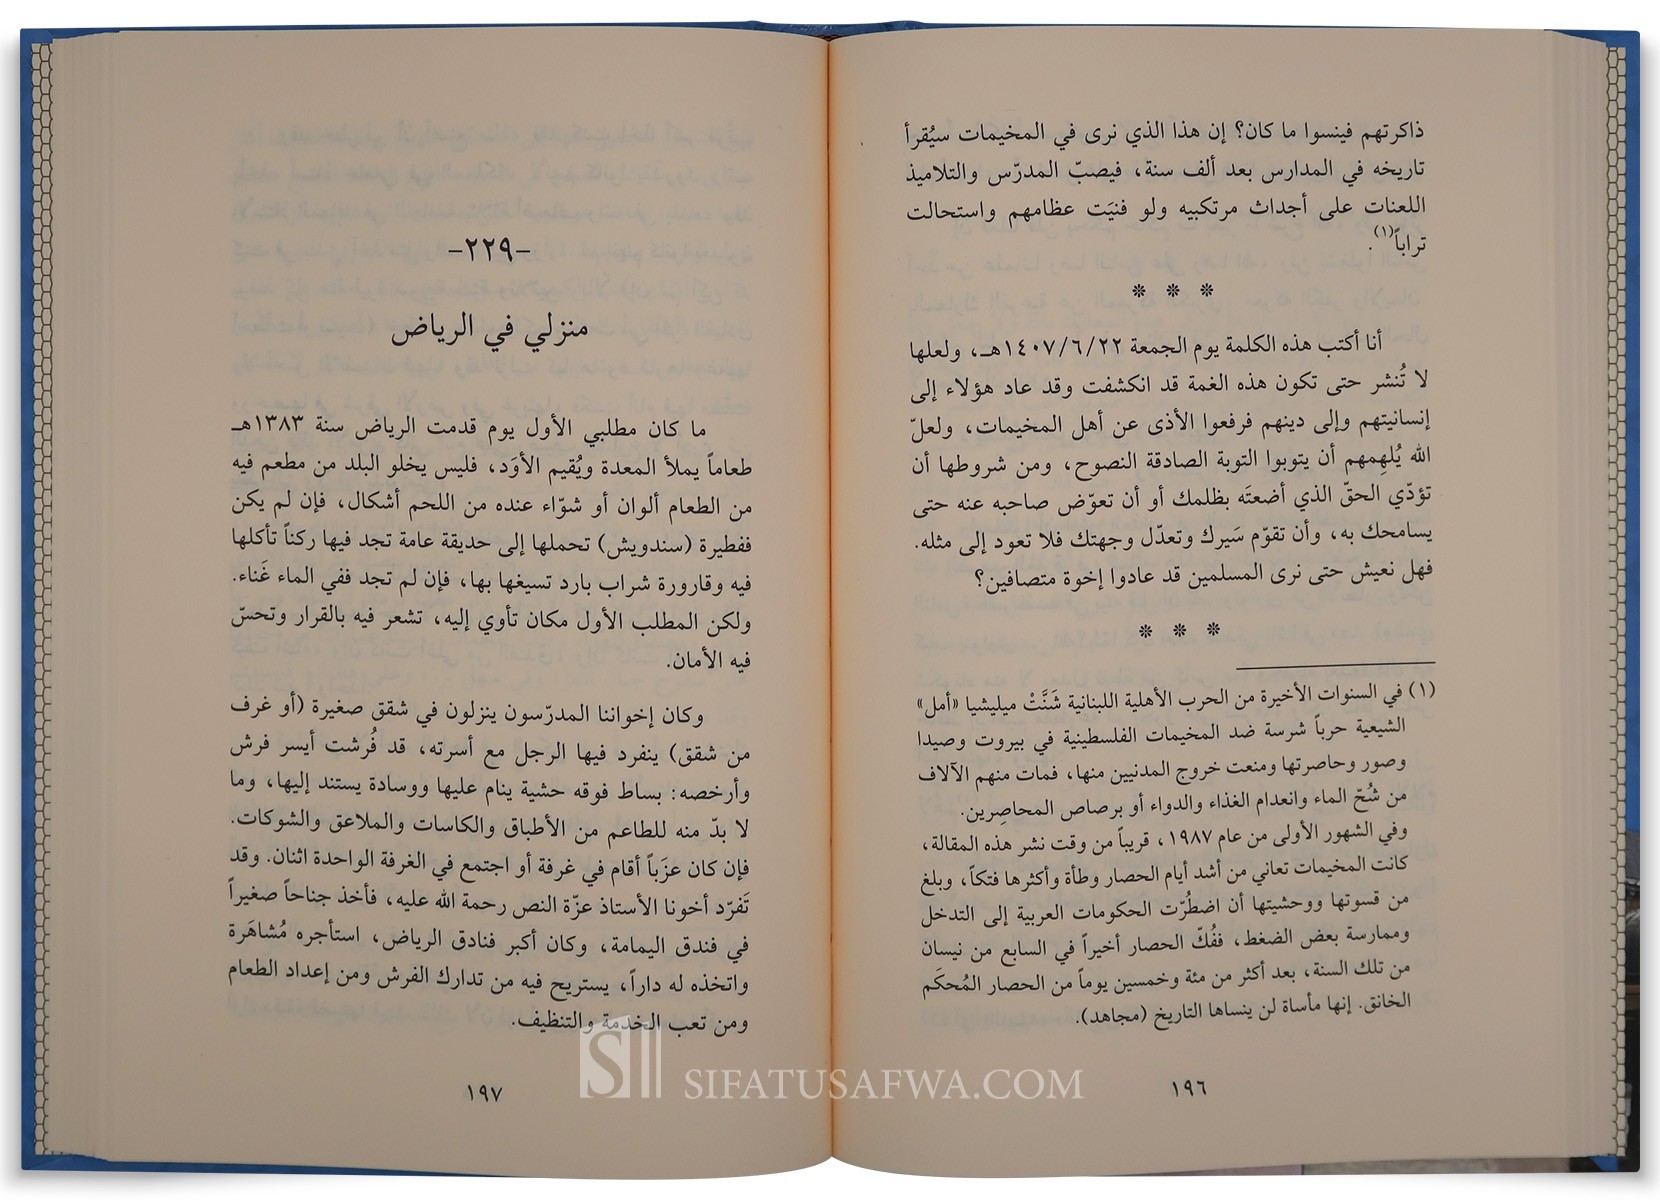 ذاكرتهم فينسوا ما كان؟ إن هذا الذي نرى في المخيمات سيُقرأ
تاريخه في المدارس بعد ألف سنة، فيصبّ المدرّس والتلاميذ
اللعنات على أجداث مرتكبيه ولو فنيَت عظامهم واستحالت
تراباً(١).
* * *
أنا أكتب هذه الكلمة يوم الجمعة ١٤٠٧/٦/٢٢هـ، ولعلها
لا تُنشر حتى تكون هذه الغمة قد انكشفت وقد عاد هؤلاء إلى
إنسانيتهم وإلى دينهم فرفعوا الأذى عن أهل المخيمات، ولعلّ
الله يُلهِمهم أن يتوبوا التوبة الصادقة النصوح، ومن شروطها أن
تؤدّي الحقّ الذي أضعتَه بظلمك أو أن تعوّض صاحبه عنه حتى
يسامحك به، وأن تقوّم سَيرك وتعدّل وجهتك فلا تعود إلى مثله.
فهل نعيش حتى نرى المسلمين قد عادوا إخوة متصافين؟
* * *
(١) في السنوات الأخيرة من الحرب الأهلية اللبنانية شَنَّتْ ميليشيا «أمل»
الشيعية حرباً شرسة ضد المخيمات الفلسطينية في بيروت وصيدا
وصور وحاصرتها ومنعت خروج المدنيين منها، فمات منهم الآلاف
من شُحّ الماء وانعدام الغذاء والدواء أو برصاص المحاصِرين.
وفي الشهور الأولى من عام ١٩٨٧، قريباً من وقت نشر هذه المقالة،
كانت المخيمات تعاني من أشد أيام الحصار وطأة وأكثرها فتكاً، وبلغ
من قسوتها ووحشيتها أن اضطُرّت الحكومات العربية إلى التدخل
وممارسة بعض الضغط، ففُكّ الحصار أخيراً في السابع من نيسان
من تلك السنة، بعد أكثر من مئة وخمسين يوماً من الحصار المُحكَم
الخانق. إنها مأساة لن ينساها التاريخ (مجاهد).
١٩٦
-٢٢٩-
منزلي في الرياض
ما كان مطلبي الأول يوم قدمت الرياض سنة ١٣٨٣هـ
طعاماً يملأ المعدة ويُقيم الأوَد، فليس يخلو البلد من مطعم فيه
من الطعام ألوان أو شوّاء عنده من اللحم أشكال، فإن لم يكن
ففطيرة (سندويش) تحملها إلى حديقة عامة تجد فيها ركناً تأكلها
فيه وقارورة شراب بارد تسيغها بها، فإن لم تجد ففي الماء غَناء.
ولكن المطلب الأول مكان تأوي إليه، تشعر فيه بالقرار وتحسّ
فيه الأمان.
وكان إخواننا المدرّسون ينزلون في شقق صغيرة (أو غرف
من شقق) ينفرد فيها الرجل مع أسرته، قد فُرشت أيسر فرش
وأرخصه: بساط فوقه حشية ينام عليها ووسادة يستند إليها، وما
لا بدّ منه للطاعم من الأطباق والكاسات والملاعق والشوكات.
فإن كان عزَباً أقام في غرفة أو اجتمع في الغرفة الواحدة اثنان. وقد
تَفرّد أخونا الأستاذ عزّة النص رحمة الله عليه، فأخذ جناحاً صغيراً
في فندق اليمامة، وكان أكبر فنادق الرياض، استأجره مُشاهَرة
واتخذه له داراً، يستريح فيه من تدارك الفرش ومن إعداد الطعام
ومن تعب الخدمة والتنظيف.
١٩٧
SIFATUSAFWA.COM